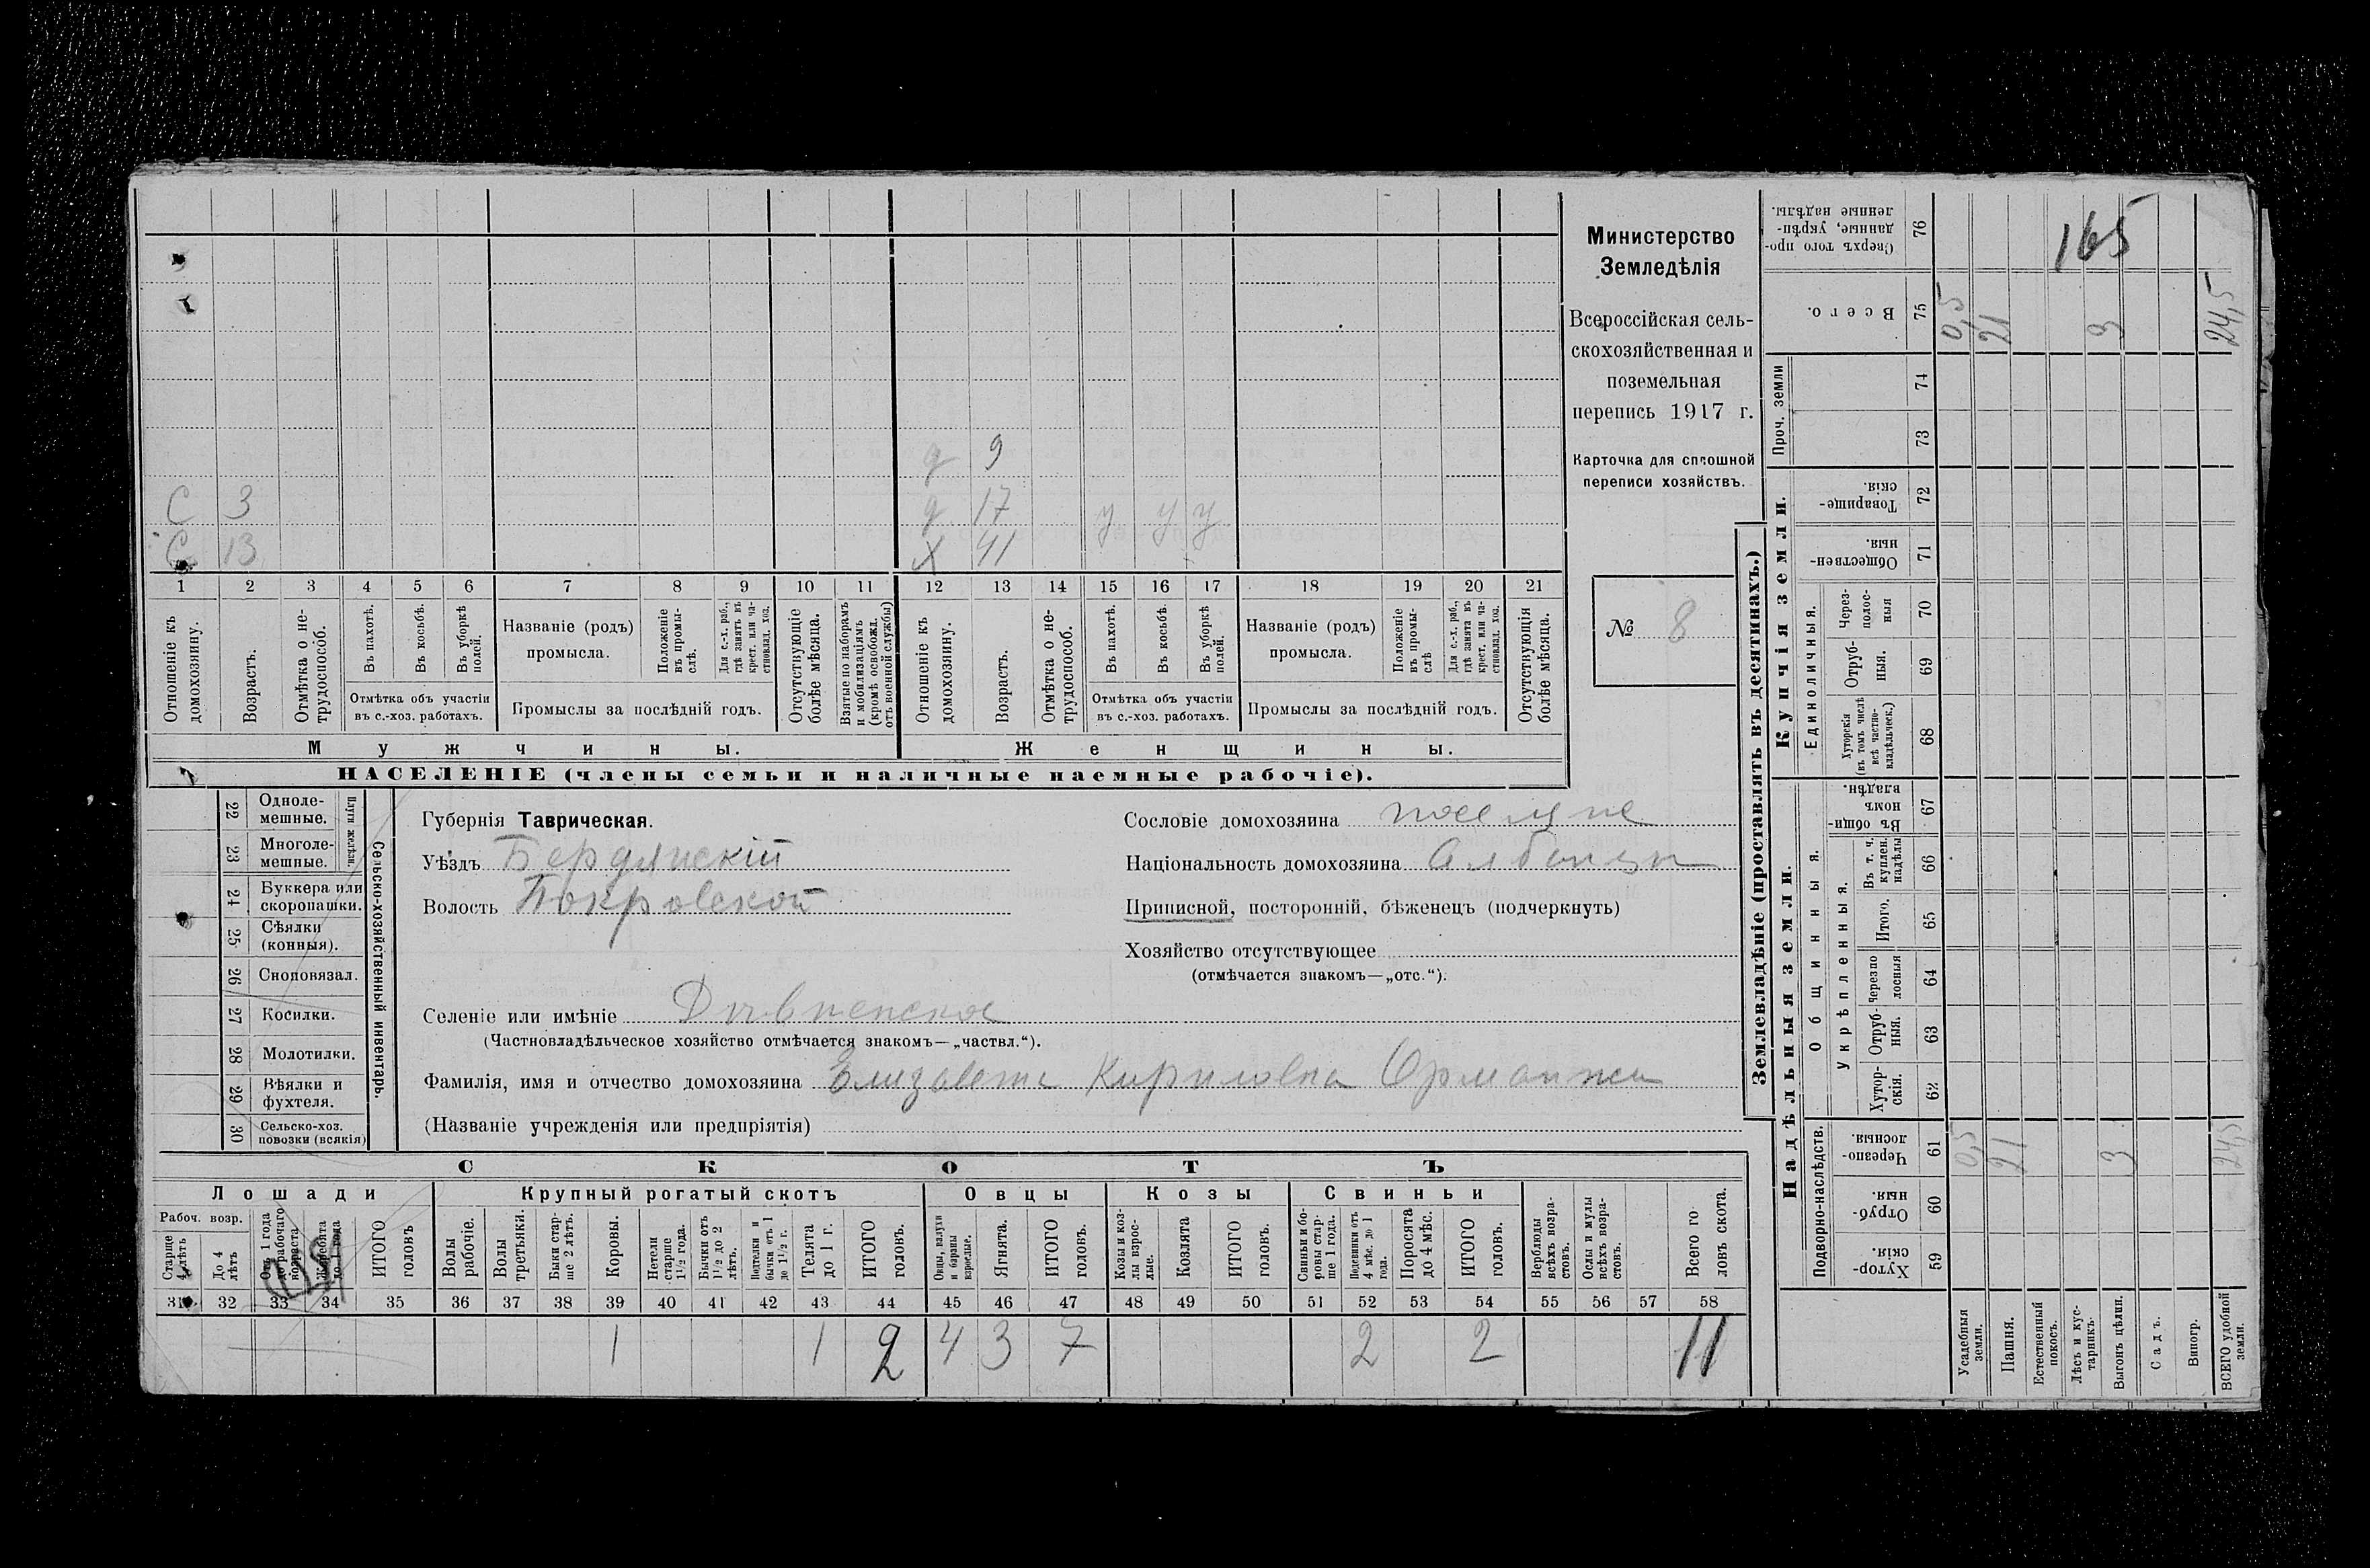 Министерство
Земледѣлія
Всероссійская сель-
скохозяйственная и
поземельная
перепись 1917 г.
Карточка для сплошной
переписи хозяйствъ.
№ 8
165
д 9
С 3 д 17 у у у
С 13 х 41
1 2 3 4 5 6 7 8 9 10 11 12 13 14 15 16 17 18 19 20 21
Отношеніе къ домохозяину.
Возрастъ.
Отмѣтка о не-трудоспособ.
Въ пахотѣ.
Въ косьбѣ.
Въ уборкѣ полей.
Отмѣтка объ участіи
въ с.-хоз. работахъ.
Названіе (родъ)
промысла.
Положеніе въ промы-слѣ.
Для с.-х. раб., гдѣ занятъ въ крест. или ча-стновлад. хоз.
Промыслы за послѣдній годъ.
Отсутствующіе болѣе мѣсяца.
Взятые по наборамъ и мобилизаціямъ (кромѣ освобожд. отъ военной службы)
Отношеніе къ домохозяину.
Возрастъ.
Отмѣтка о не-трудоспособ.
Въ пахотѣ.
Въ косьбѣ.
Въ уборкѣ полей.
Отмѣтка объ участіи
въ с.-хоз. работахъ.
Названіе (родъ)
промысла.
Положеніе въ промы-слѣ
Для с.-х. раб., гдѣ занята въ крест. или ча-стновлад. хоз.
Промыслы за послѣдній годъ.
Отсутствующія болѣе мѣсяца.
Мужчины. Женщины.
НАСЕЛЕНІЕ (члены семьи и наличные наемные рабочіе).
22 Одноле-мешные.
23 Многоле-мешные.
Плуги желѣзн.
24 Буккера или скоропашки.
25 Сѣялки (конныя).
26 Сноповязал.
27 Косилки.
28 Молотилки.
29 Вѣялки и фухтеля.
30 Сельско-хоз. повозки (всякія)
Сельско-хозяйственный инвентарь.
Губернія Таврическая.
Уѣздъ Бердянскій
Волость Покровской
Сословіе домохозяина
Національность домохозяина Албанцы
Приписной, посторонній, бѣженецъ (подчеркнуть)
Хозяйство отсутствующее
(отмѣчается знакомъ—„отс.“).
Селеніе или имѣніе
(Частновладѣльческое хозяйство отмѣчается знакомъ—„частвл.“).
Фамилія, имя и отчество домохозяина Елизавета Кириловна Орманжи
(Названіе учрежденія или предпріятія)
СКОТЪ
Лошади Крупный рогатый скотъ Овцы Козы Свиньи
Рабоч. возр.
Старше 4 лѣтъ
До 4 лѣтъ
Отъ 1 года до рабочаго возраста
Жеребята до 1 года
ИТОГО головъ
Волы рабочіе.
Волы третьяки.
Быки стар-ше 2 лѣтъ.
Коровы.
Нетели старше 1½ года.
Бычки отъ 1½ до 2 лѣтъ.
Подтелки и бычки отъ 1 до 1½ г.
Телята до 1 г.
ИТОГО головъ.
Овцы, валухи и бараны взрослые.
Ягнята.
ИТОГО головъ.
Козы и коз-лы взрос-лые.
Козлята
ИТОГО головъ.
Свиньи и бо-ровы стар-ше 1 года.
Подсвинки отъ 4 мѣс. до 1 года.
Поросята до 4 мѣс.
ИТОГО головъ.
Верблюды всѣхъ возра-стовъ.
Ослы и мулы всѣхъ возра-стовъ.
Всего го ловъ скота.
31 32 33 34 35 36 37 38 39 40 41 42 43 44 45 46 47 48 49 50 51 52 53 54 55 56 57 58
1 1 2 4 3 7 2 2 11
Землевладѣніе (проставлять въ десятинахъ.)
Купчія земли.
Надѣльныя земли.
Сверхъ того про-данные, укрѣп-ленные надѣлы. 76
Всего. 75 0,5 21 3 24,5
Проч. земли 74 73
Товарище-скія. 72
Обществен-ныя. 71
Единоличныя.
Через-полос-ныя 70
Отруб-ныя. 69
Хуторскія (въ томъ числѣ всѣ частно-владѣльческ.) 68
Общинныя.
Въ общин-номъ владѣн. 67
Укрѣпленныя.
Въ т. ч. куплен. надѣлы 66
Итого. 65
Черезпо лосныя 64
Отруб-ныя. 63
Хутор-скія. 62
Подворно-наслѣдств.
Черезпо-лосныя. 61 0,5 21 3 24,5
Отруб-ныя. 60
Хутор-скія. 59
Усадебныя земли.
Пашня.
Естественный покосъ.
Лѣсъ и кус-тарникъ.
Выгонъ цѣлин.
Садъ.
Виногр.
ВСЕГО удобной земли.